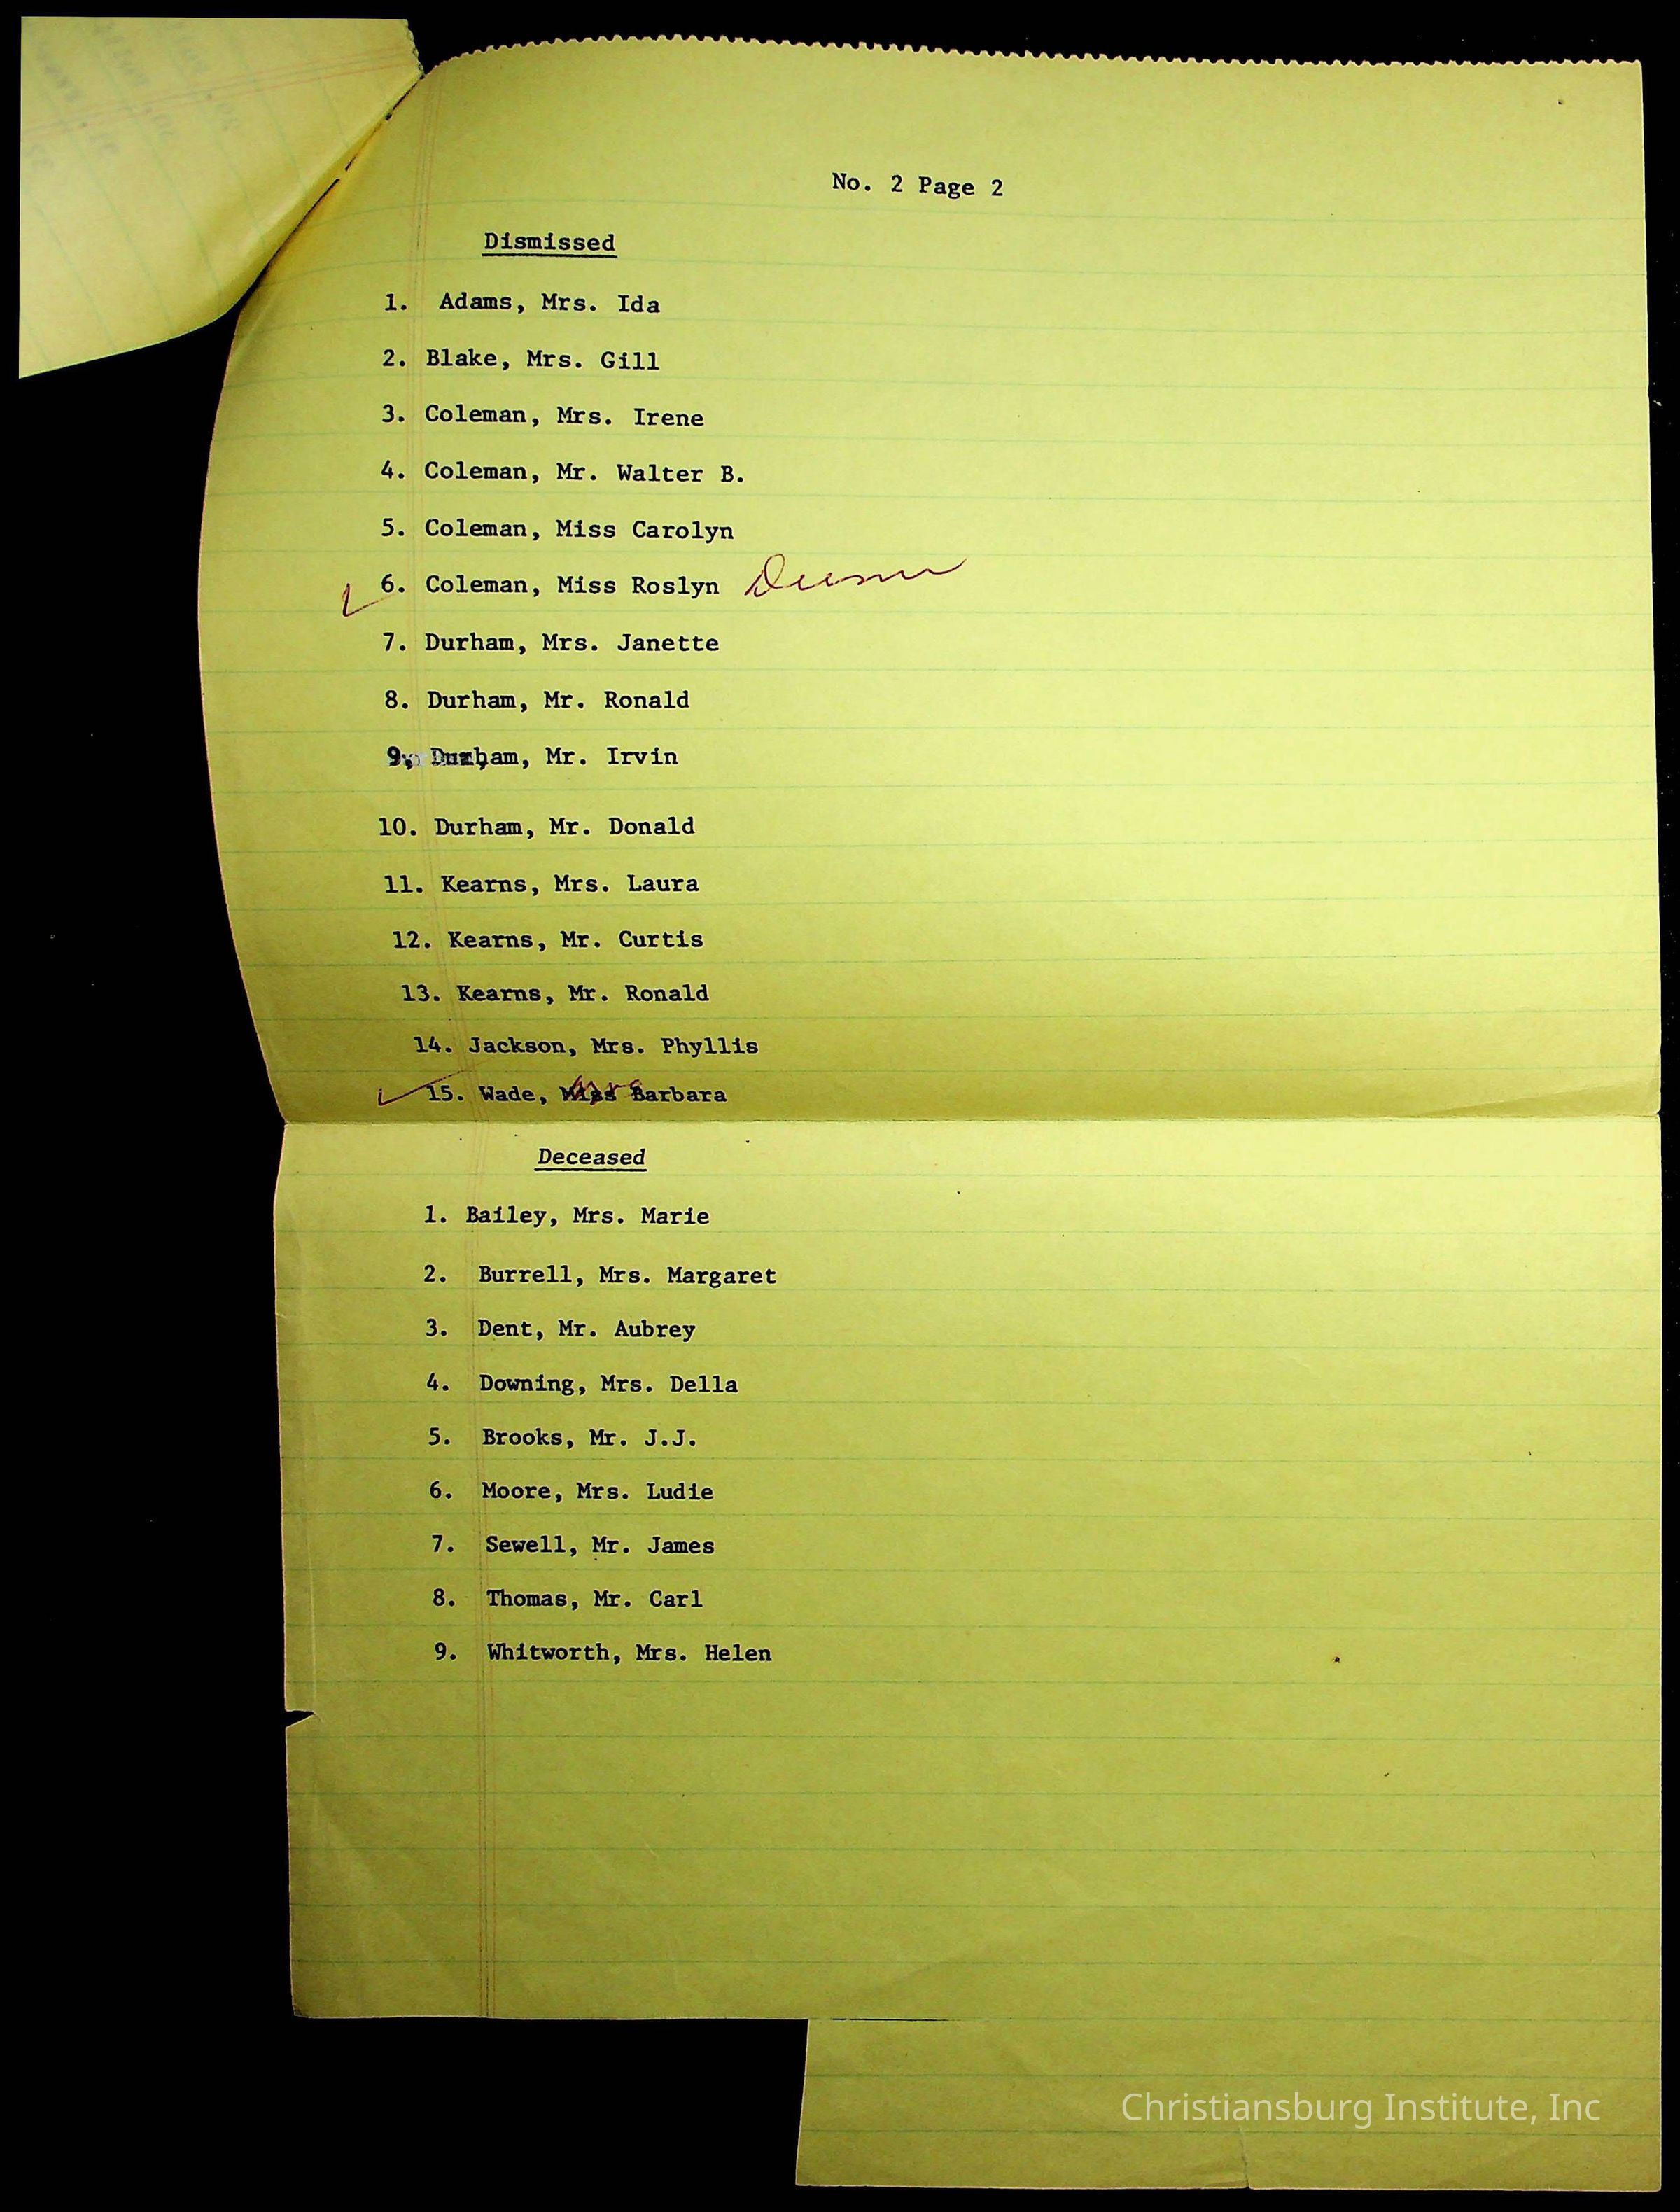 No. 2 Page 2
Dismissed
1. Adams, Mrs. Ida
2. Blake, Mrs. Gill
3. Coleman, Mrs. Irene
4. Coleman, Mr. Walter B.
5. Coleman, Miss Carolyn
6. Coleman, Miss Roslyn
7. Durham, Mrs. Janette
8. Durham, Mr. Ronald
9. Durham, Mr. Irvin
10. Durham, Mr. Donald
11. Kearns, Mrs. Laura
12. Kearns, Mr. Curtis
13. Kearns, Mr. Ronald
14. Jackson, Mrs. Phyllis
15. Wade, Miss Mrs Barbara
Deceased
1. Bailey, Mrs. Marie
2. Burrell, Mrs. Margaret
3. Dent, Mr. Aubrey
4. Downing, Mrs. Della
5. Brooks, Mr. J.J.
6. Moore, Mrs. Ludie
7. Sewell, Mr. James
8. Thomas, Mr. Carl
9. Whitworth, Mrs. Helen
Christiansburg Institute, Inc